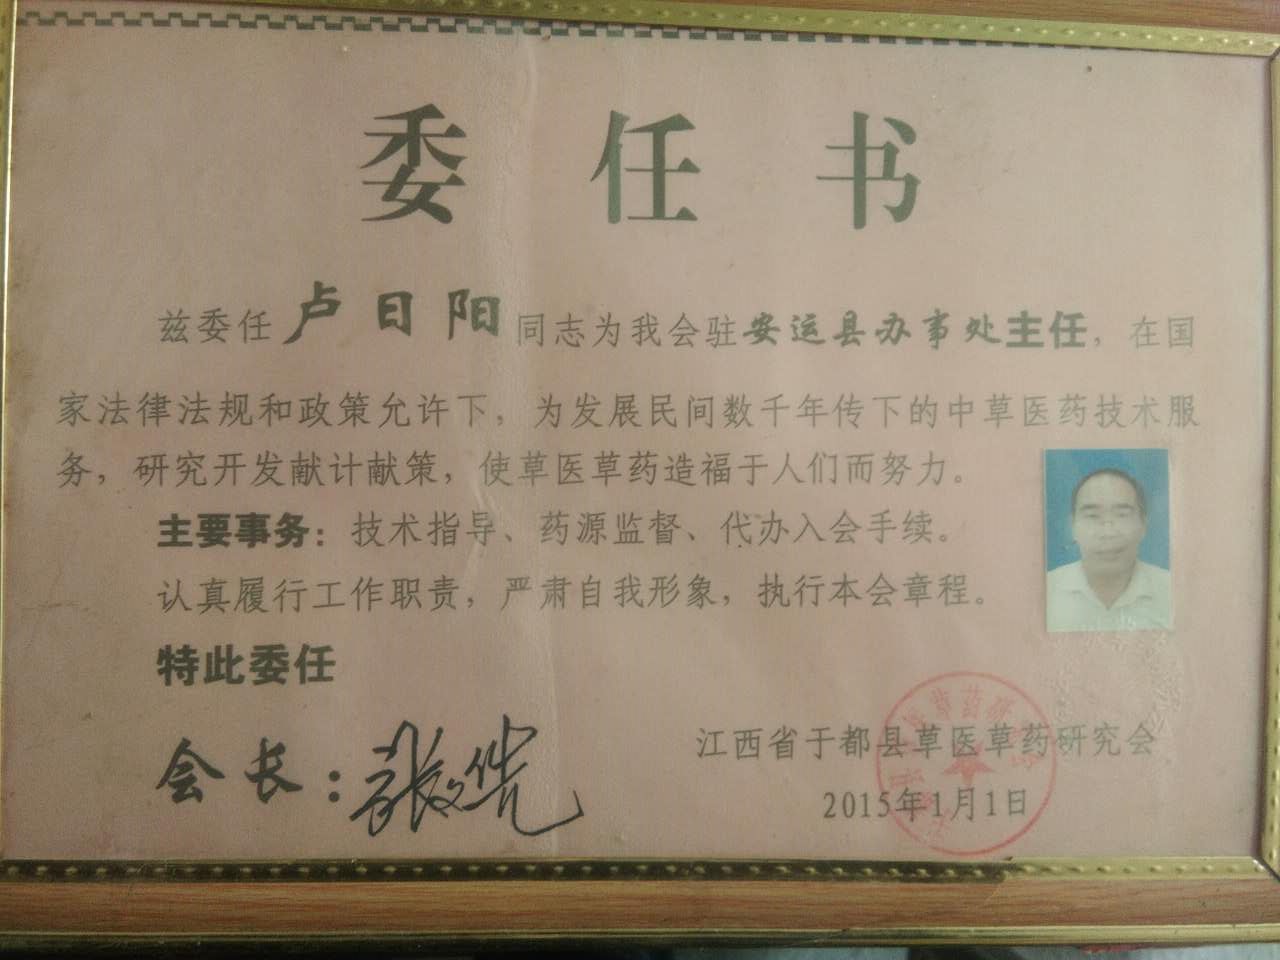 委任书
兹委任卢日阳同志为我会驻安远县办事处主任，在国
家法律法规和政策允许下，为发展民间数千年传下的中草医药技术服
务，研究开发献计献策，使草医草药造福于人们而努力。
主要事务：技术指导、药源监督、代办入会手续。
认真履行工作职责，严肃自我形象，执行本会章程。
特此委任
会长：
江西省于都县草医草药研究会
2015年1月1日